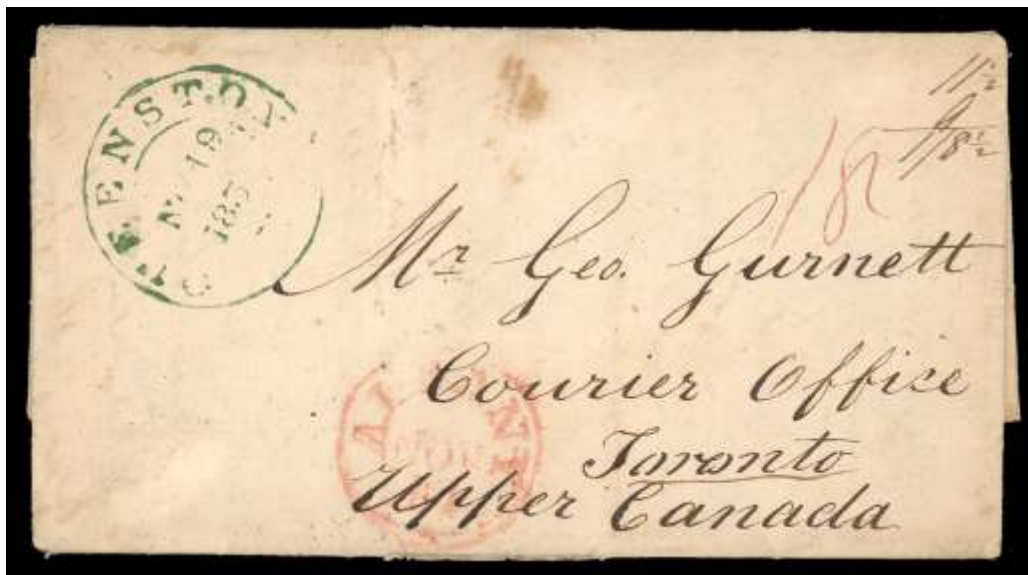 QUEENSTON
19
183
18
11½
1/8½
Mr Geo. Gurnett
Courier Office
Toronto
Upper Canada
NOV